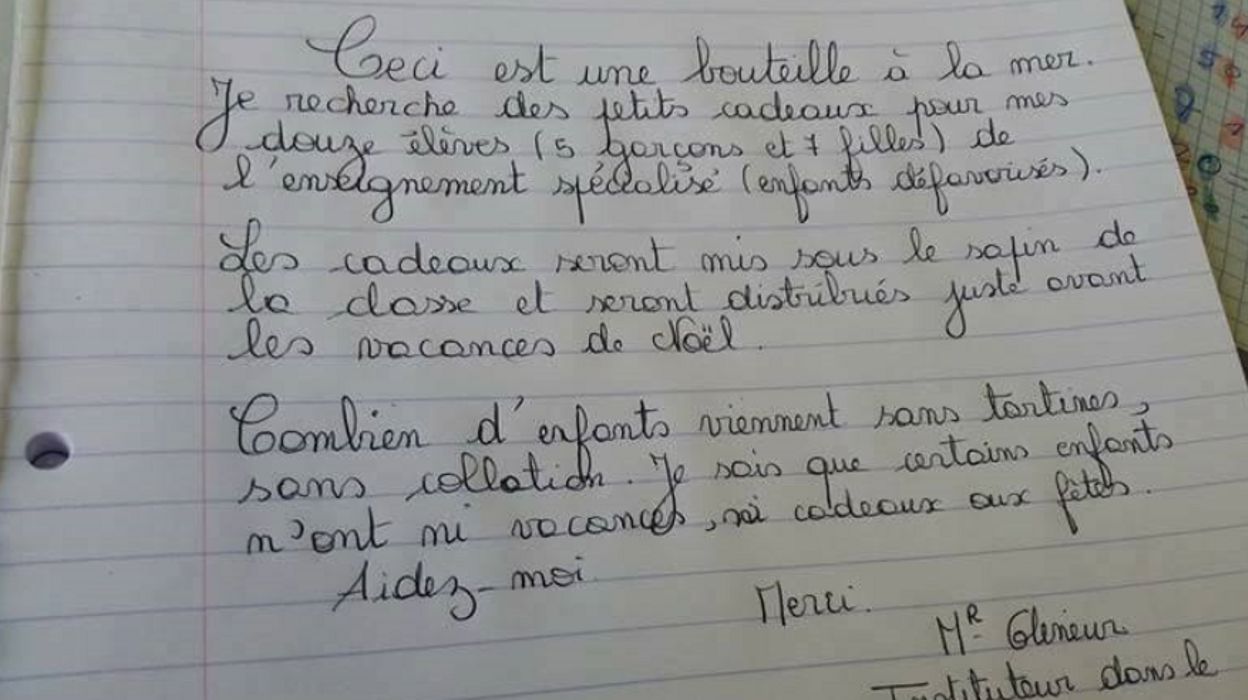 Ceci est une bouteille à la mer.
Je recherche des petits cadeaux pour mes
douze élèves (5 garçons et 7 filles) de
l'enseignement spécialisé (enfants défavorisés).
Les cadeaux seront mis sous le sapin de
la classe et seront distribués juste avant
les vacances de Noël.
Combien d'enfants viennent sans tartines,
sans collation. Je sais que certains enfants
n'ont ni vacances, ni cadeaux aux fêtes.
Aidez-moi
Merci.
MR
Instituteur dans le